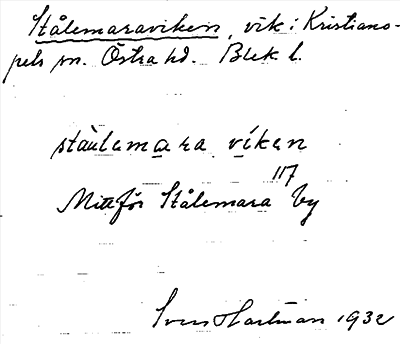 Stålemaraviken, vik i Kristiano-
pels sn. Östra hd. Blek l.
ståulemara víken
117
Mitt för Stålemara by
Sven Hartman 1932